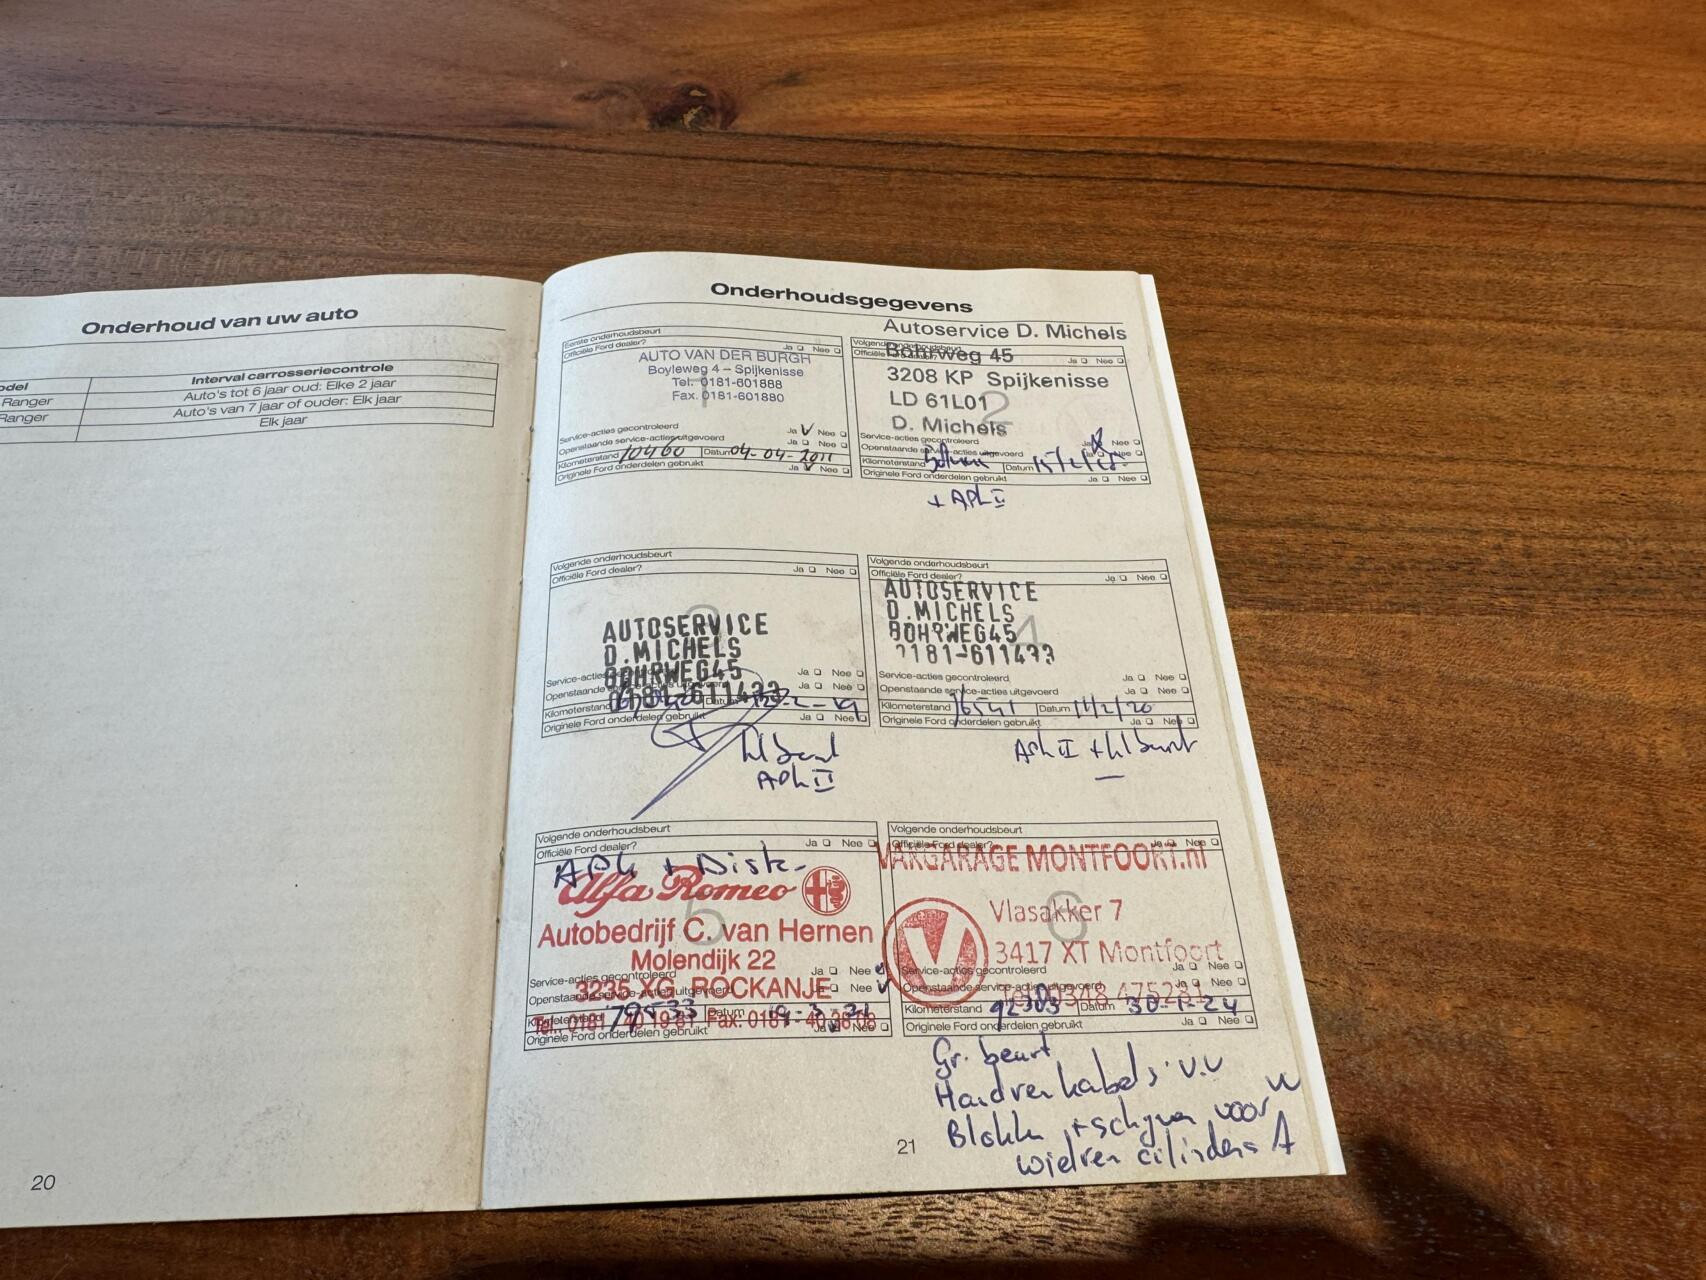 Onderhoud van uw auto
odel
Interval carrosseriecontrole
Ranger
Auto's tot 6 jaar oud: Elke 2 jaar
Auto's van 7 jaar of ouder: Elk jaar
Ranger
Elk jaar
20
Onderhoudsgegevens
Eerste onderhoudsbeurt
Officiële Ford dealer? Ja Nee
AUTO VAN DER BURGH
Boyleweg 4 – Spijkenisse
Tel. 0181-601888
Fax. 0181-601880
1
Service-acties gecontroleerd Ja Nee
Openstaande service-acties uitgevoerd Ja Nee
Kilometerstand 10460 Datum 04-04-2011
Originele Ford onderdelen gebruikt Ja Nee
Autoservice D. Michels
Volgende onderhoudsbeurt
Officiële Ford dealer? Ja Nee
Bohrweg 45
3208 KP Spijkenisse
LD 61L01
2
D. Michels
Service-acties gecontroleerd Ja Nee
Openstaande service-acties uitgevoerd Ja Nee
Kilometerstand Datum
Originele Ford onderdelen gebruikt Ja Nee
Volgende onderhoudsbeurt
Officiële Ford dealer? Ja Nee
3
AUTOSERVICE
D.MICHELS
BOHRWEG45
0181-611433
Service-acties Ja Nee
Openstaande service-acties uitgevoerd Ja Nee
Kilometerstand Datum
Originele Ford onderdelen gebruikt Ja Nee
Volgende onderhoudsbeurt
Officiële Ford dealer? Ja Nee
AUTOSERVICE
D.MICHELS
BOHRWEG45
4
0181-611433
Service-acties gecontroleerd Ja Nee
Openstaande service-acties uitgevoerd Ja Nee
Kilometerstand Datum 11/2/20
Originele Ford onderdelen gebruikt Ja Nee
Volgende onderhoudsbeurt
Officiële Ford dealer? Ja Nee
APK +
Alfa Romeo
5
Autobedrijf C. van Hernen
Molendijk 22
3235 XG ROCKANJE
Service-acties gecontroleerd Ja Nee
Openstaande service-acties uitgevoerd Ja Nee
Kilometerstand 79533 Datum
Tel.: 0181 - 40 19 81 Fax: 0181 -
Originele Ford onderdelen gebruikt Ja Nee
Volgende onderhoudsbeurt
Officiële Ford dealer? Ja Nee
VAKGARAGE MONTFOORT.nl
6
Vlasakker 7
3417 XT Montfoort
Service-acties gecontroleerd Ja Nee
Openstaande service-acties uitgevoerd Ja Nee
0348 475281
Kilometerstand 92303 Datum 30-1-24
Originele Ford onderdelen gebruikt Ja Nee
Gr. beurt
Handremkabels V.V
Blokken + schijven voor
wielrem cilinders A
21